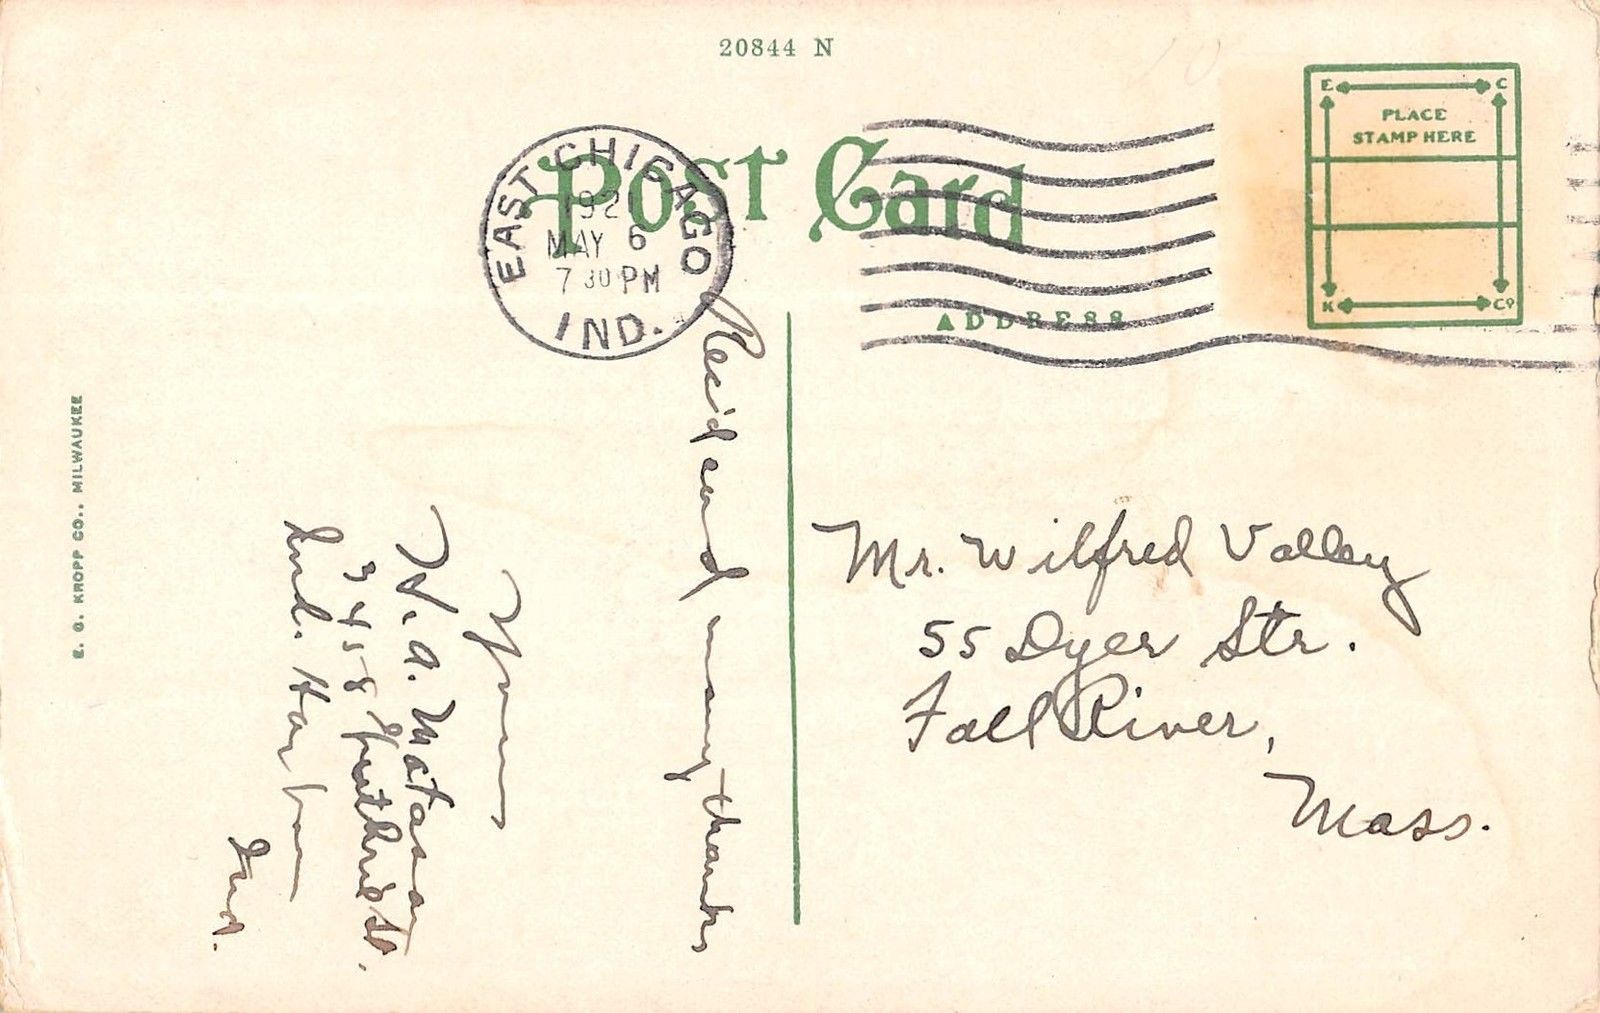 20844 N
POST CARD
EAST CHICAGO
192
MAY 6
7 30 PM
IND.
E C
PLACE
STAMP HERE
K Co
ADDRESS
E. C. KROPP CO., MILWAUKEE
Rec'd card many thanks
Yours
H. A. Matason
3458 Guthrie St.
Ind. Harbor
Ind.
Mr. Wilfred Valley
55 Dyer Str.
Fall River,
Mass.